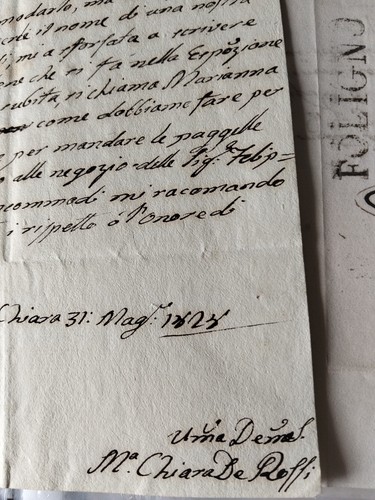 modarlo, ma
il nome di una nostra
mi a sforsata a scrivere
che si fa nella Espozione
subita, si chiama Marianna
come dobbiamo fare per
per mandare le paggelle
alle negozio delle Sig.e Felip=
incommadi mi racomando
i rispetto ó l'onore di
Chiara 31: Mag.º 1825
Uma Dema S.
M.a Chiara De Rossi
FOLIGNO